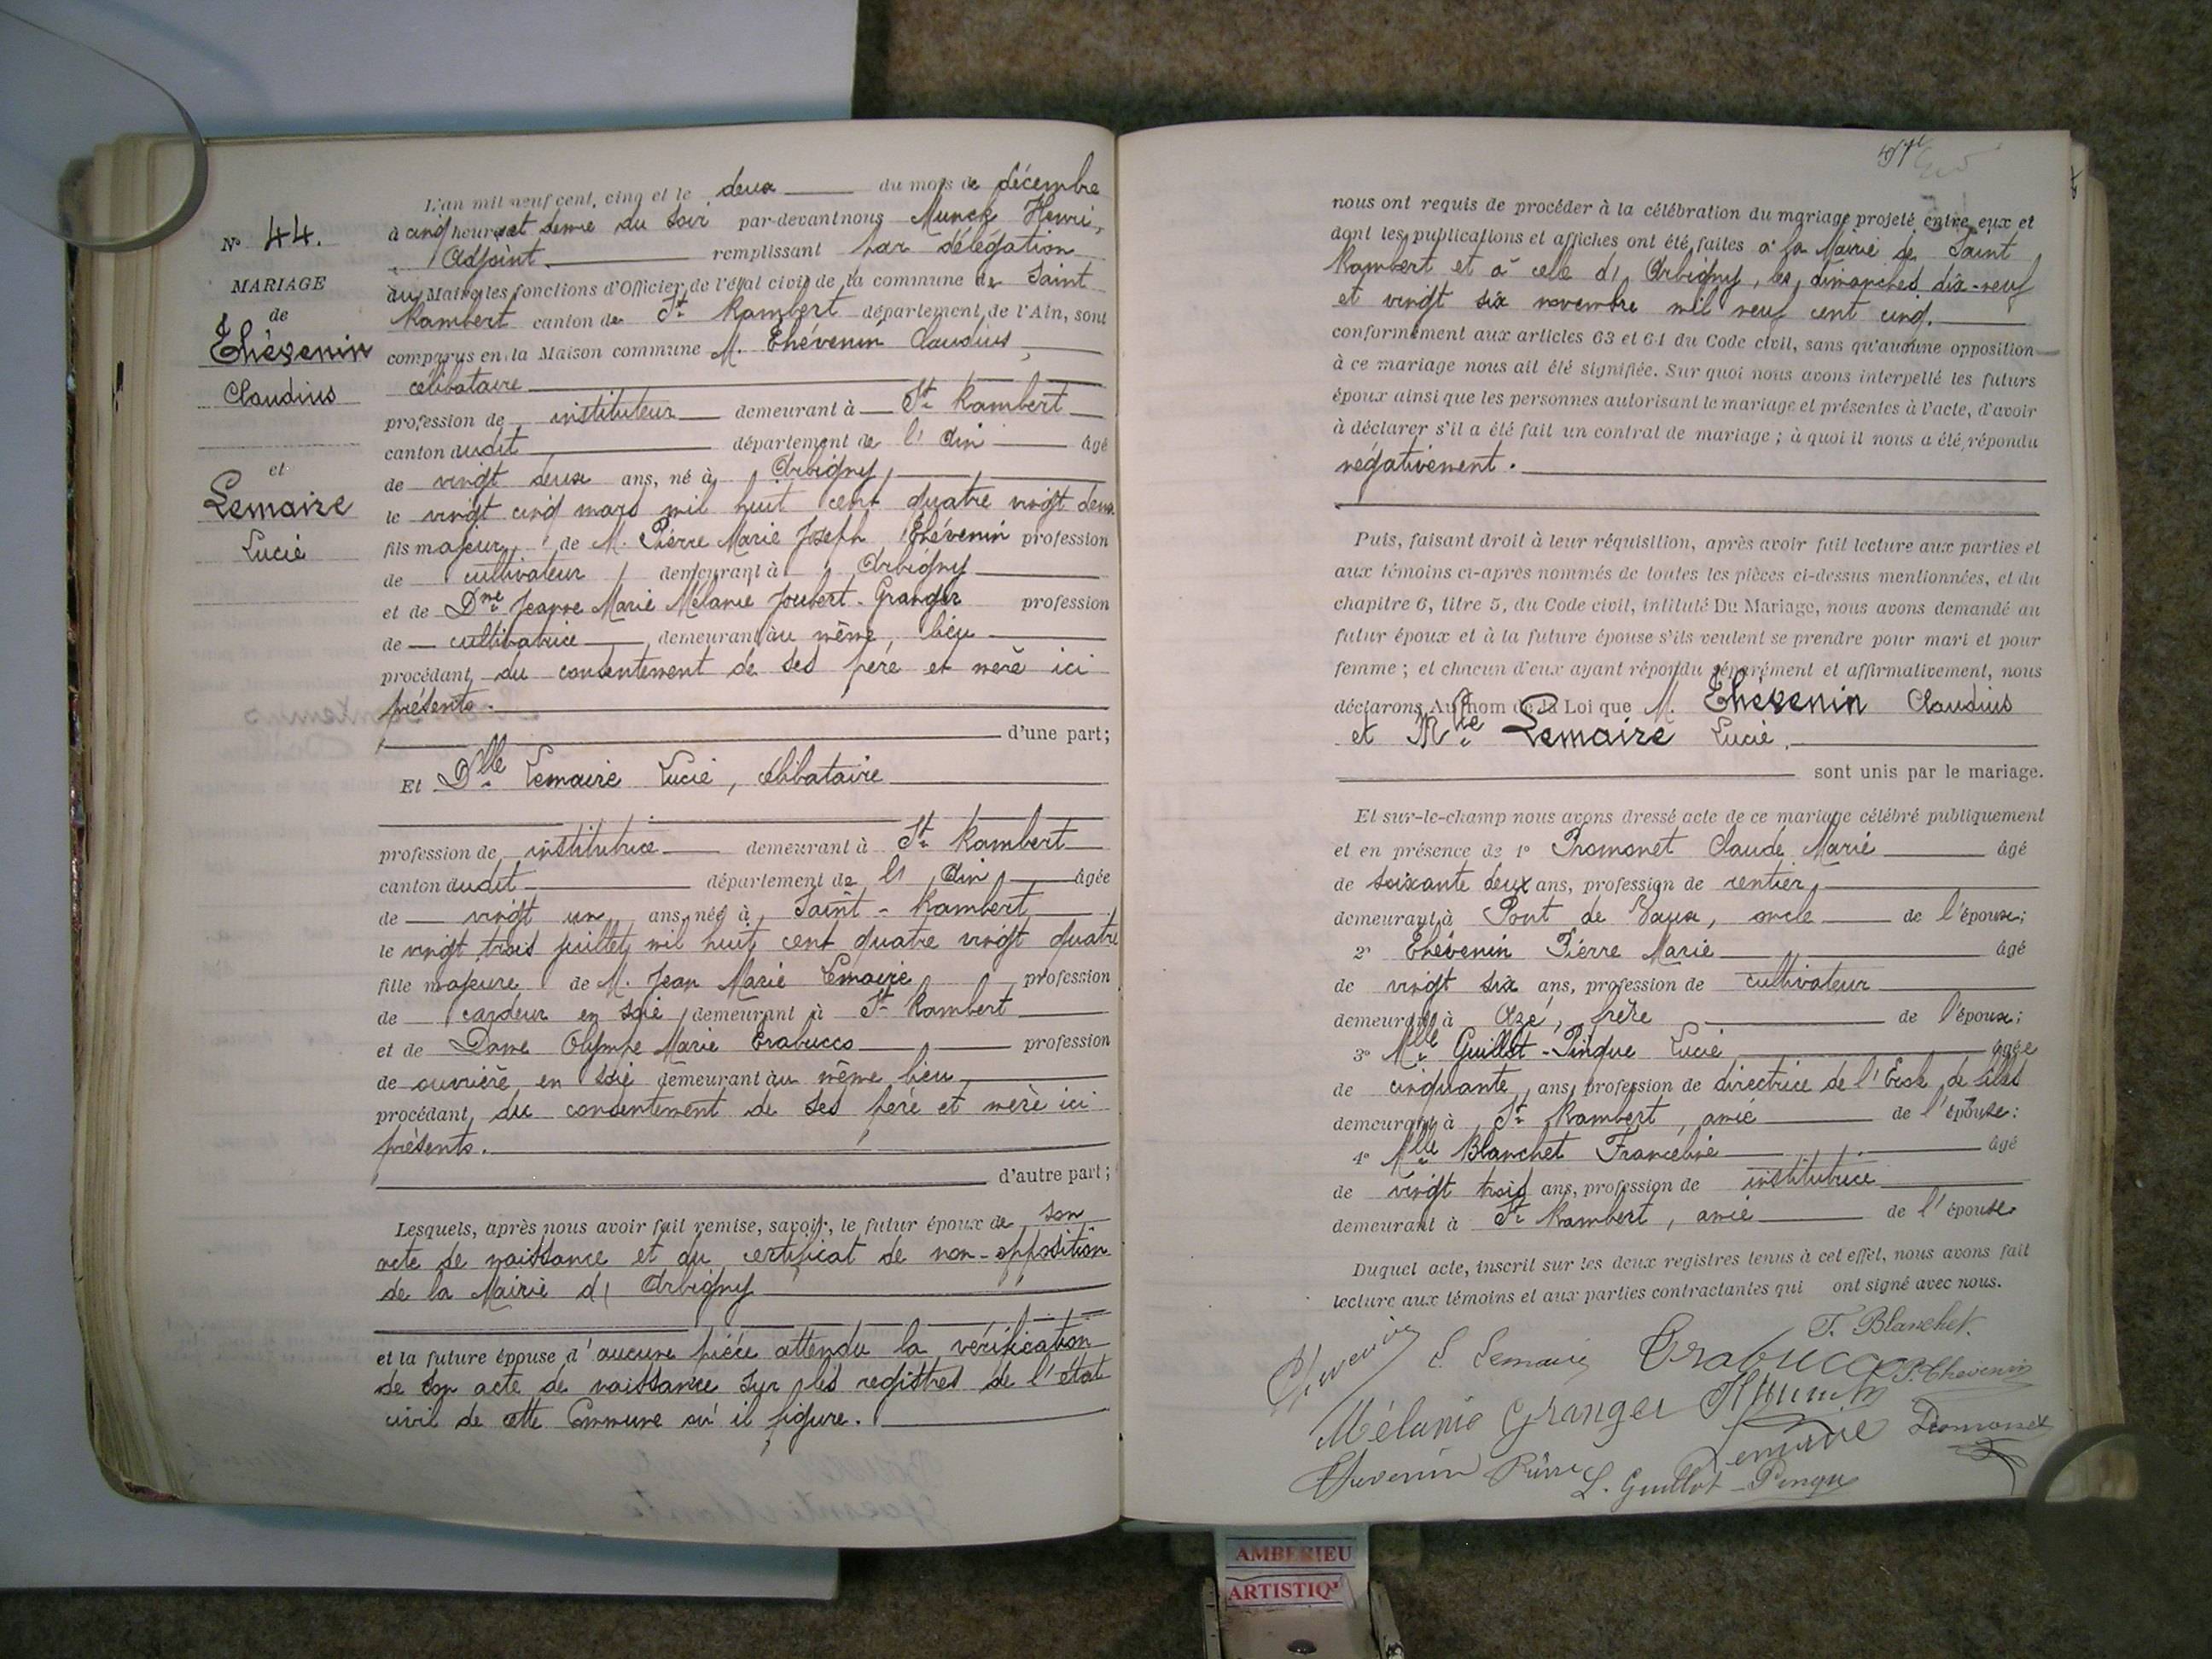 N° 44.
MARIAGE
de
Thévenin
Claudius
et
Lemaire
Lucie
L'an mil neuf cent, cinq et le deux du mois de décembre
à cinq heures et demie du soir par-devant nous Munck Henri,
Adjoint remplissant par délégation
du Maire les fonctions d'Officier de l'état civil de la commune de Saint
Rambert canton de St Rambert département de l'Ain, sont
comparus en la Maison commune M. Thévenin Claudius,
célibataire
profession de instituteur demeurant à St Rambert
canton dudit département de l'Ain âgé
de vingt deux ans, né à Arbigny
le vingt cinq mars mil huit cent quatre vingt deux
fils majeur de M. Pierre Marie Joseph Thévenin profession
de cultivateur demeurant à Arbigny
et de Dme Jeanne Marie Mélanie Joubert-Granger profession
de cultivatrice demeurant au même lieu
procédant du consentement de ses père et mère ici
présents.
d'une part;
Et Dlle Lemaire Lucie, célibataire
profession de institutrice demeurant à St Rambert
canton dudit département de l'Ain âgée
de vingt un ans, née à Saint-Rambert
le vingt trois juillet mil huit cent quatre vingt quatre
fille majeure de M. Jean Marie Lemaire profession
de cardeur en soie demeurant à St Rambert
et de Dame Olympe Marie Trabucco profession
de ouvrière en soie demeurant au même lieu
procédant du consentement de ses père et mère ici
présents.
d'autre part;
Lesquels, après nous avoir fait remise, savoir, le futur époux de son
acte de naissance et du certificat de non-opposition
de la Mairie d'Arbigny
et la future épouse d'aucune pièce attendu la vérification
de son acte de naissance sur les registres de l'état
civil de cette Commune où il figure.
nous ont requis de procéder à la célébration du mariage projeté entre eux et
dont les publications et affiches ont été faites à la Mairie de Saint
Rambert et à celle d'Arbigny, les dimanches dix-neuf
et vingt six novembre mil neuf cent cinq.
conformément aux articles 63 et 64 du Code civil, sans qu'aucune opposition
à ce mariage nous ait été signifiée. Sur quoi nous avons interpellé les futurs
époux ainsi que les personnes autorisant le mariage et présentes à l'acte, d'avoir
à déclarer s'il a été fait un contrat de mariage; à quoi il nous a été répondu
négativement.
Puis, faisant droit à leur réquisition, après avoir fait lecture aux parties et
aux témoins ci-après nommés de toutes les pièces ci-dessus mentionnées, et du
chapitre 6, titre 5, du Code civil, intitulé Du Mariage, nous avons demandé au
futur époux et à la future épouse s'ils veulent se prendre pour mari et pour
femme; et chacun d'eux ayant répondu séparément et affirmativement, nous
déclarons Au nom de la Loi que M. Thévenin Claudius
et Mlle Lemaire Lucie,
sont unis par le mariage.
Et sur-le-champ nous avons dressé acte de ce mariage célébré publiquement
et en présence de 1° Promonet Claude Marie âgé
de soixante deux ans, profession de rentier
demeurant à Pont de Vaux, oncle de l'épouse;
2° Thévenin Pierre Marie âgé
de vingt six ans, profession de cultivateur
demeurant à Azé, frère de l'époux;
3° Mlle Guillot-Pingue Lucie âgée
de cinquante ans, profession de directrice de l'Ecole de filles
demeurant à St Rambert, amie de l'épouse;
4° Mlle Blanchet Franceline âgé
de vingt trois ans, profession de institutrice
demeurant à St Rambert, amie de l'épouse
Duquel acte, inscrit sur les deux registres tenus à cet effet, nous avons fait
lecture aux témoins et aux parties contractantes qui ont signé avec nous.
F. Blanchet.
Thevenin L. Lemaire Trabucco P. Thevenin
Mélanie Granger H Munck
Lemaire Promonet
Thevenin Pierre L. Guillot-Pingue
AMBERIEU
ARTISTIQ